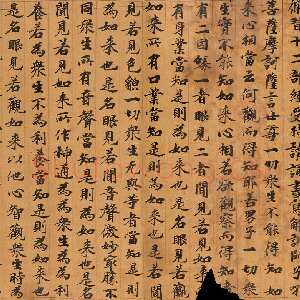 菩薩摩訶薩言世尊一切眾生不能得知如
來心相當云何觀而得知耶善男子一切眾
生實不能知如來心相若欲觀察而得知者
有二因緣一者眼見二者聞見若見如來所
有身業當知是則為如來也是名眼見若觀
如來所有口業當知是則為如來也是名聞
見若見色貌一切眾生無與等者當知是則
為如來也是名眼見若聞音聲微妙最勝不
同眾生所有音聲當知是則為如來也是名
聞見若見如來所作神通為為眾生為利
養若為眾生不為利養當知是則為如來也
是名眼見若觀如來以他心智觀眾生時為